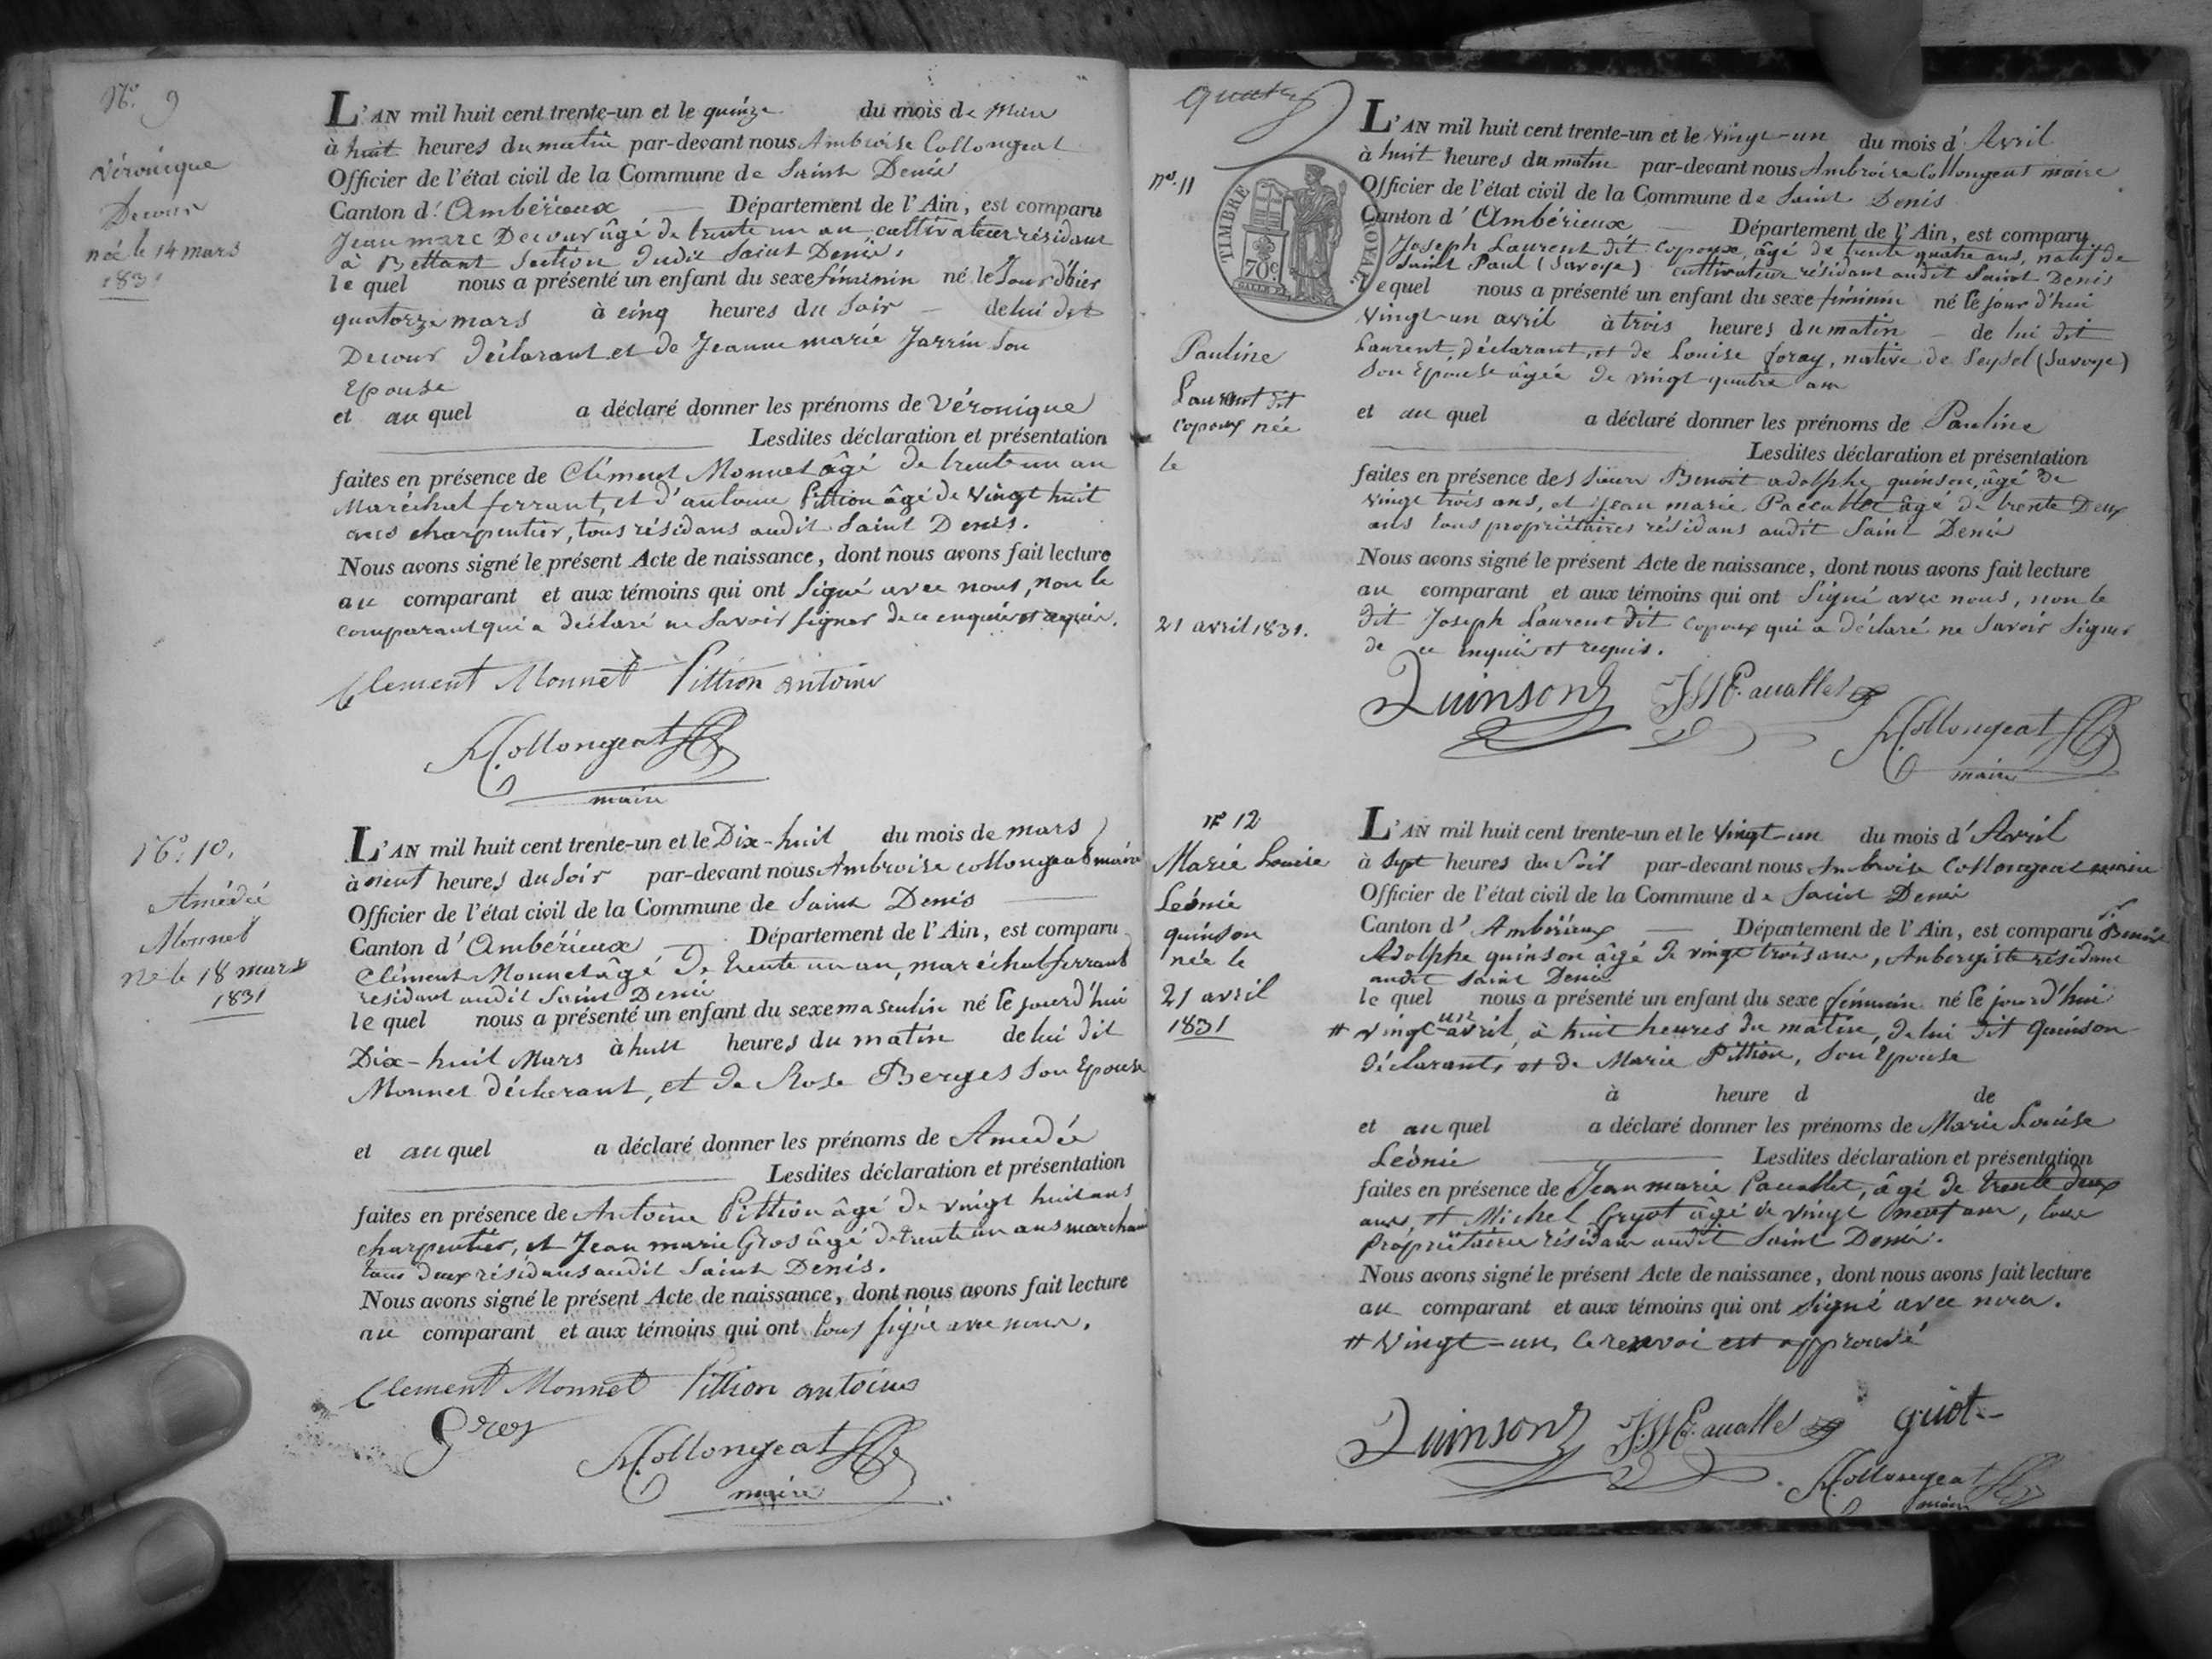 N.º 9
Véronique
Decour
née le 14 mars
1831
L'AN mil huit cent trente-un et le quinze du mois de Mars
à huit heures du matin par-devant nous Ambroise Collongeat
Officier de l'état civil de la Commune de Saint Denis
Canton d'Ambérieux Département de l'Ain, est comparu
Jean marc Decour âgé de trente un an cultivateur résidant
à Bettant Section dudit Saint Denis.
le quel nous a présenté un enfant du sexe féminin né le Jour d'hier
quatorze mars à cinq heures du Soir de lui dit
Decour déclarant et de Jeanne marie Jarrin Son
Epouse
et au quel a déclaré donner les prénoms de Véronique
Lesdites déclaration et présentation
faites en présence de Clément Monnet âgé de trente un an
Maréchal ferrant, et d'antoine Pittion âgé de vingt huit
ans charpentier, tous résidans audit Saint Denis.
Nous avons signé le présent Acte de naissance, dont nous avons fait lecture
au comparant et aux témoins qui ont Signé avec nous, non le
comparant qui a déclaré ne Savoir signer de ce enquis et requis.
Clement Monnet Pittion antoine
A. Collongeat
maire
N.º 10.
Amédée
Monnet
né le 18 mars
1831
L'AN mil huit cent trente-un et le Dix-huit du mois de mars
à neuf heures du Soir par-devant nous Ambroise collongeat maire
Officier de l'état civil de la Commune de Saint Denis
Canton d'Ambérieux Département de l'Ain, est comparu
Clément Monnet âgé de trente un an, maréchal ferrant
residant audit Saint Denis
le quel nous a présenté un enfant du sexe masculin né le jourd'hui
Dix-huit Mars à huit heures du matin de lui dit
Monnet déclarant, et de Rose Berges Son Epouse
et au quel a déclaré donner les prénoms de Amédée
Lesdites déclaration et présentation
faites en présence de Antoine Pittion âgé de vingt huit ans
charpentier, et Jean marie Gros âgé de trente un ans marchand
tous deux résidans audit Saint Denis.
Nous avons signé le présent Acte de naissance, dont nous avons fait lecture
au comparant et aux témoins qui ont tous signé avec nous.
Clement Monnet Pittion antoine
Gros
A. Collongeat
maire
quatre
nº. 11
TIMBRE ROYAL
70c
Pauline
Laurent dit
Copoux née
le
21 avril 1831.
L'AN mil huit cent trente-un et le vingt-un du mois d'Avril
à huit heures du matin par-devant nous Ambroise Collongeat maire
Officier de l'état civil de la Commune de Saint Denis
Canton d'Ambérieux Département de l'Ain, est comparu
Joseph Laurent dit Copoux, âgé de trente quatre ans, natif de
Saint Paul (Savoye) cultivateur résidant audit Saint Denis
le quel nous a présenté un enfant du sexe féminin né le jour d'hui
Vingt-un avril à trois heures du matin de lui dit
Laurent, déclarant, et de Louise foray, native de Seysel (Savoye)
Son Epouse âgée de vingt quatre ans
et au quel a déclaré donner les prénoms de Pauline
Lesdites déclaration et présentation
faites en présence des Sieurs Benoit adolphe quinson, âgé de
vingt trois ans, et Jean marie Paccallet âgé de trente Deux
ans tous propriétaires résidans audit Saint Denis
Nous avons signé le présent Acte de naissance, dont nous avons fait lecture
au comparant et aux témoins qui ont Signé avec nous, non le
dit Joseph Laurent dit Copoux qui a déclaré ne Savoir Signer
de ce enquis et requis.
Quinson J M Pacallet
A. Collongeat
maire
nº 12
Marie Louise
Léonie
quinson
née le
21 avril
1831
L'AN mil huit cent trente-un et le Vingt-un du mois d'Avril
à Sept heures du Soir par-devant nous Ambroise Collongeat maire
Officier de l'état civil de la Commune de Saint Denis
Canton d'Ambérieux Département de l'Ain, est comparu Sr. Benoit
Adolphe quinson âgé de vingt trois ans, Aubergiste résidant
audit Saint Denis
le quel nous a présenté un enfant du sexe féminin né le jourd'hui
# vingt-un avril, à huit heures du matin, de lui dit Quinson
déclarant, et de Marie Pittion, Son Epouse
à heure d de
et au quel a déclaré donner les prénoms de Marie Louise
Léonie Lesdites déclaration et présentation
faites en présence de Jean marie Paccallet, âgé de trente deux
ans, et Michel Guyot âgé de vingt neuf ans, tous
propriétaires résidans audit Saint Denis.
Nous avons signé le présent Acte de naissance, dont nous avons fait lecture
au comparant et aux témoins qui ont Signé avec nous.
# Vingt-un, le renvoi est approuvé
Quinson J M Pacallet guiot
A. Collongeat
maire